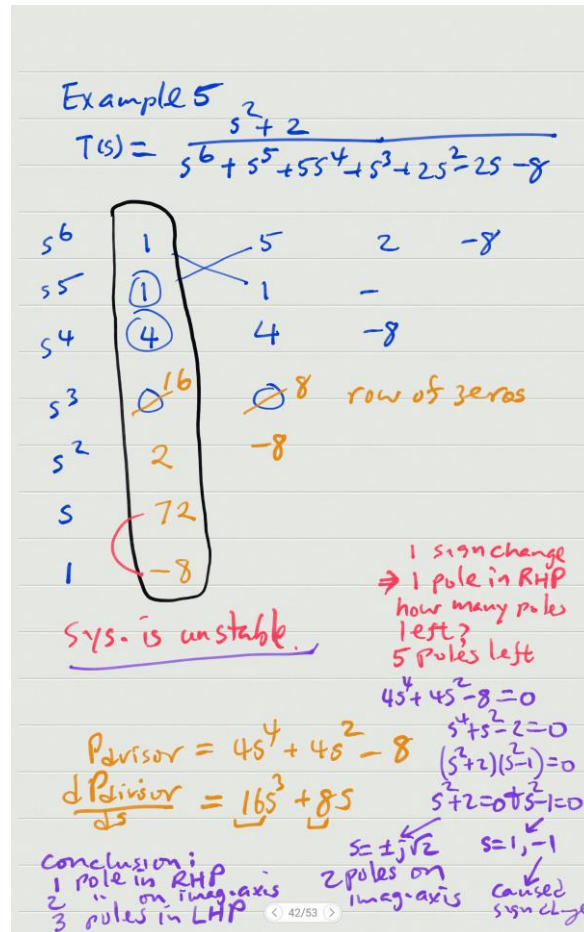 Example 5
s² + 2
T(s) = ———
s⁶ + s⁵ + 5s⁴ + s³ + 2s² - 2s - 8
s⁶ 1 5 2 -8
s⁵ 1 1 -
s⁴ 4 4 -8
s³ 0 16 0 8 row of zeros
s² 2 -8
s 72
1 -8
1 sign change
⇒ 1 pole in RHP
how many poles
left?
5 poles left
sys. is unstable.
4s⁴ + 4s² - 8 = 0
s⁴ + s² - 2 = 0
(s² + 2)(s² - 1) = 0
s² + 2 = 0 + s² - 1 = 0
s = ± j√2 s = 1, -1
2 poles on
imag-axis
caused
sign change
Pdivisor = 4s⁴ + 4s² - 8
dPdivisor/ds = 16s³ + 8s
conclusion:
1 pole in RHP
2 " on imag-axis
3 poles in LHP
42/53